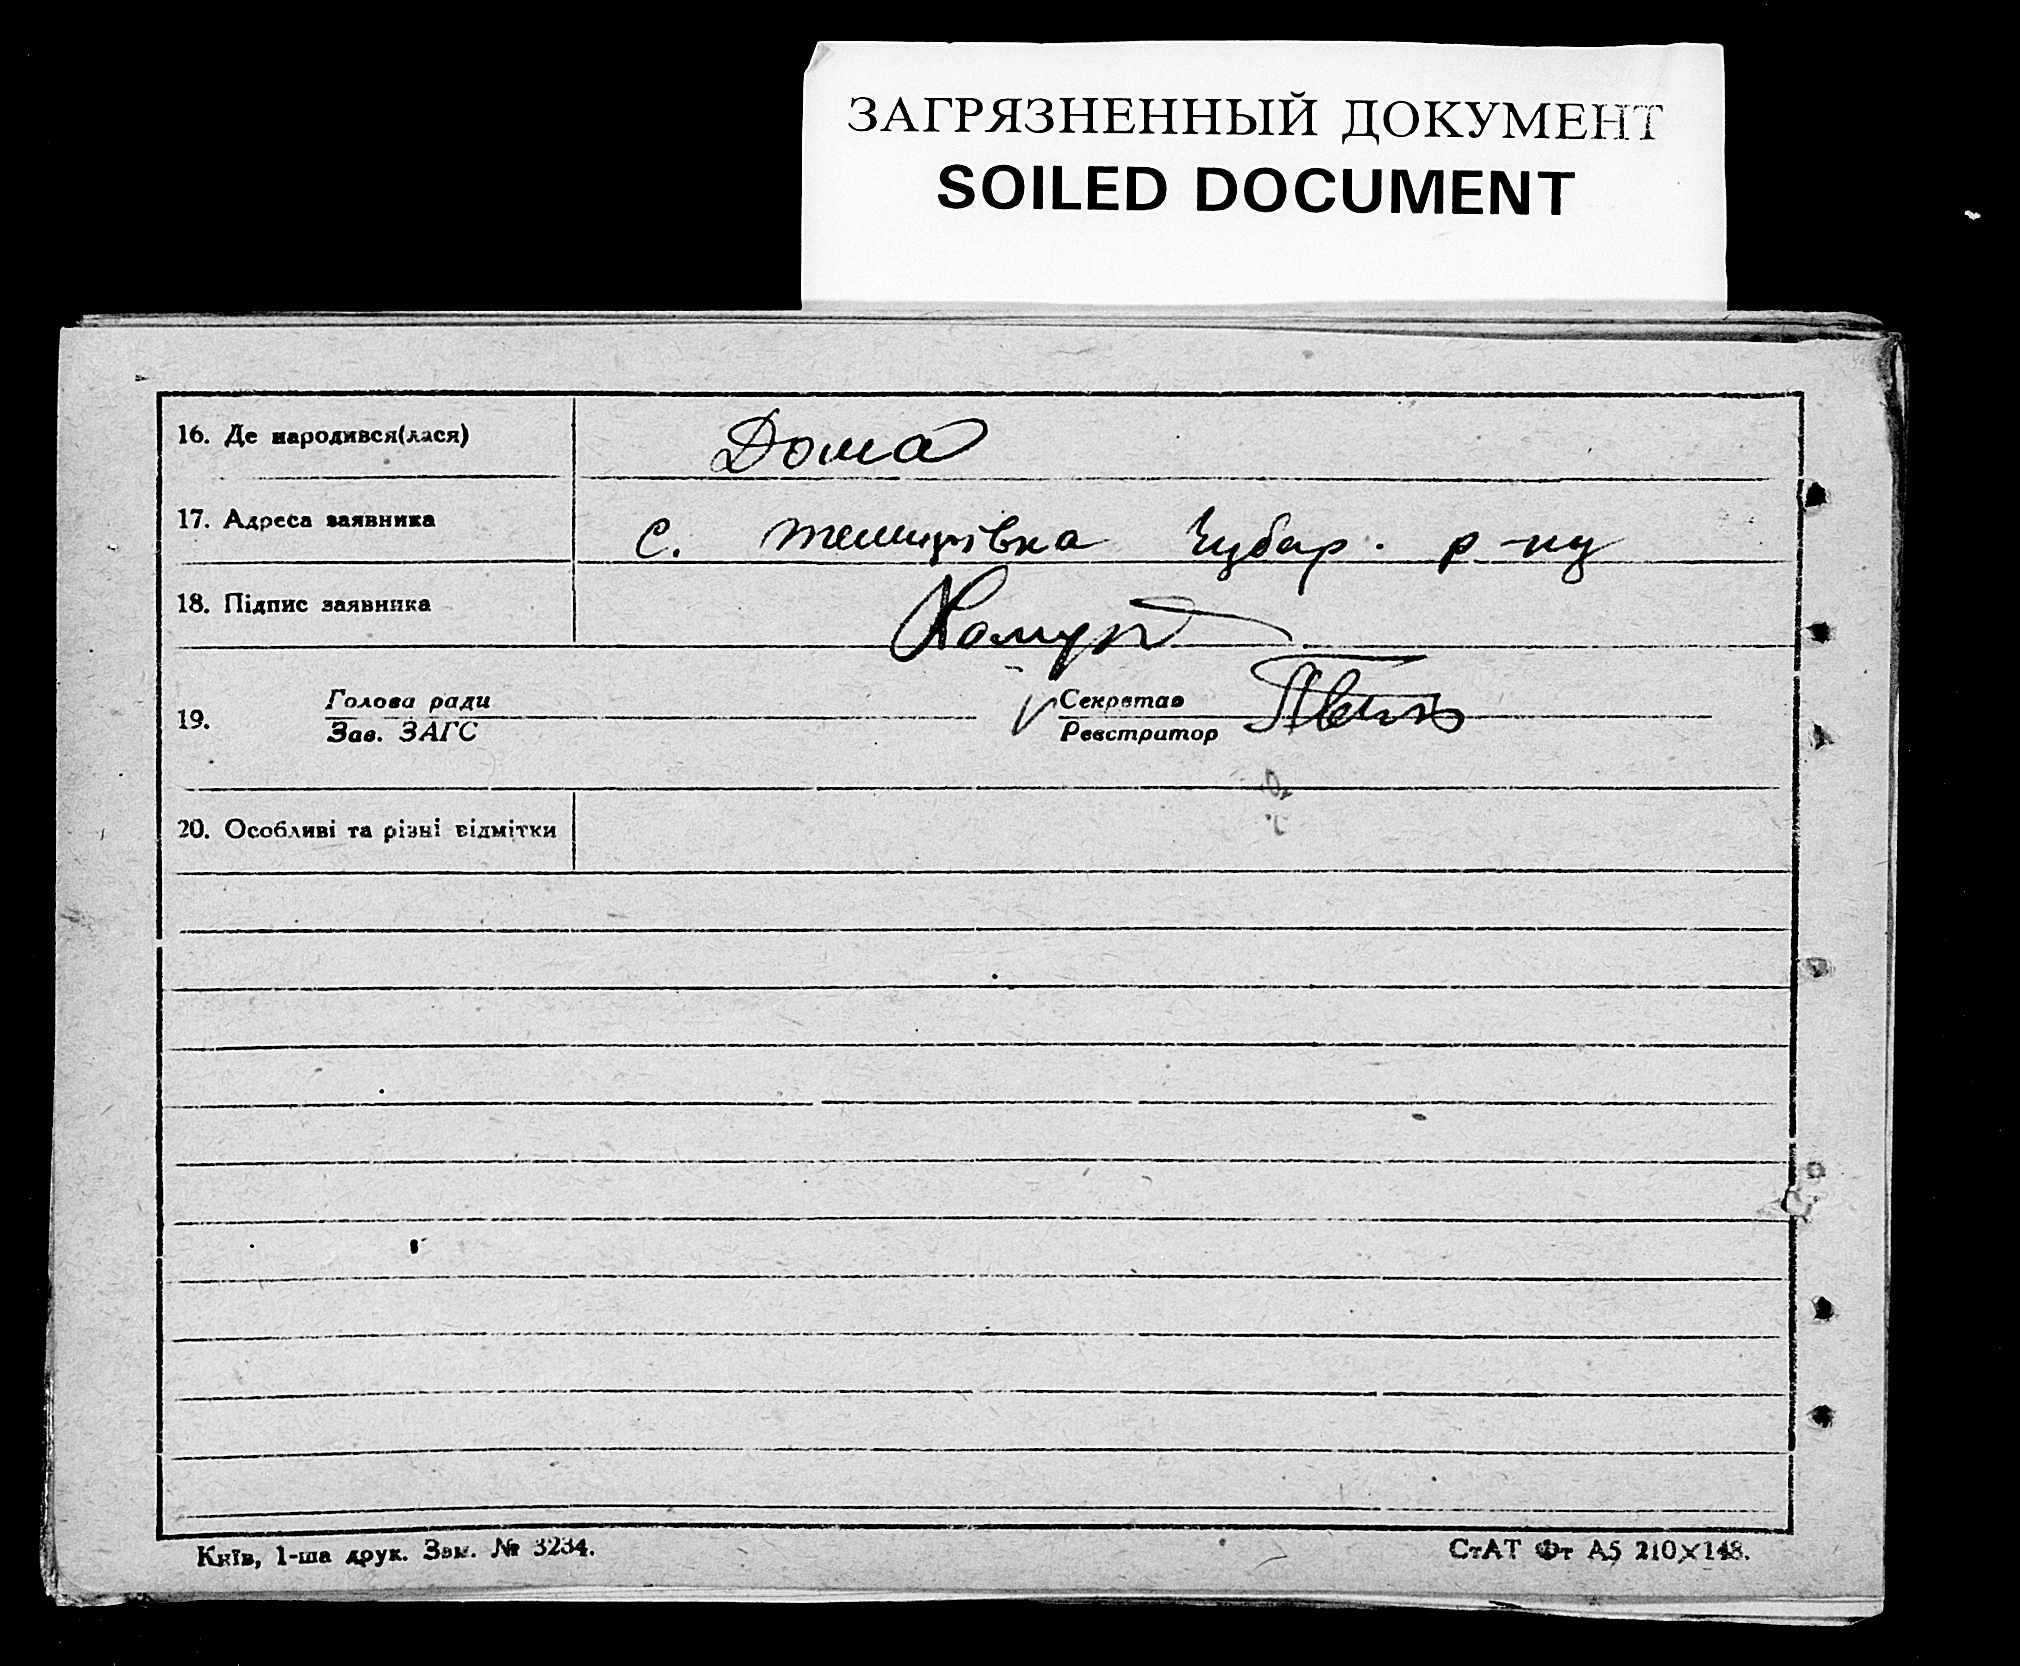 ЗАГРЯЗНЕННЫЙ ДОКУМЕНТ
SOILED DOCUMENT
16. Де народився(лася) Дома
17. Адреса заявника с. Темирівка Чубар. р-ну
18. Підпис заявника
19. Голова ради Секретар
Зав. ЗАГС Реєстратор
20. Особливі та різні відмітки
Київ, 1-ша друк. Зам. № 3234. СтАТ Фт А5 210×148.